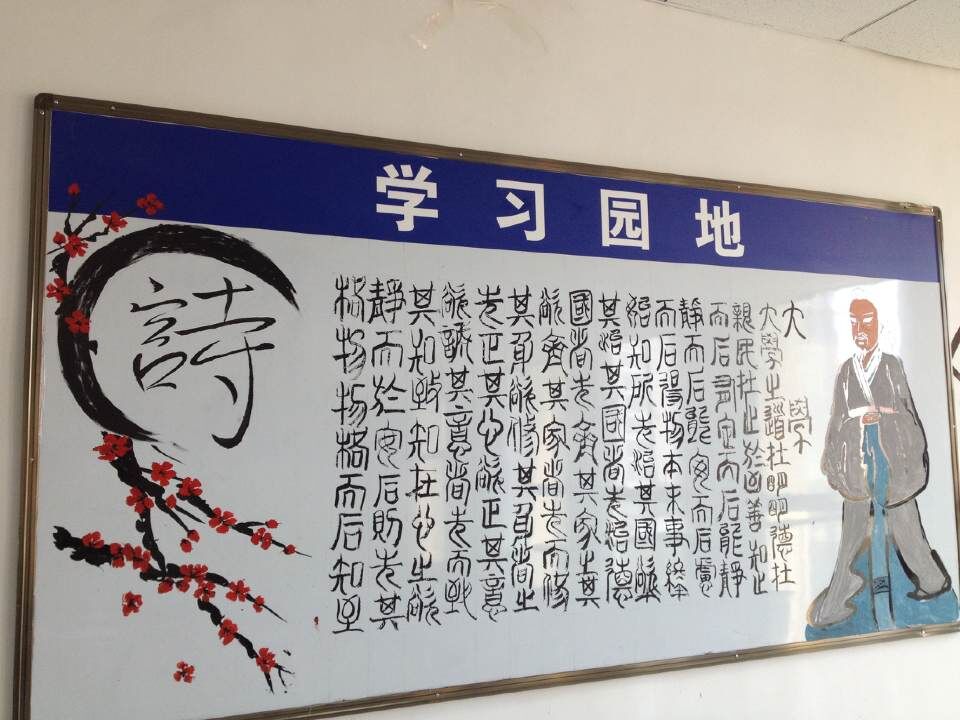 学习园地
詩
大學
大學之道在明明德在
親民在止於至善知止
而后有定而后能靜
靜而后能安而后慮
而后得物本末事終
始知所先治其國欲
其治其國者先治德
國者先齊其家之其
欲齊其家者先而修
其身欲修其身者之
先正其心欲正其意
欲誠其意者先而致
其知致知在心之欲
靜而於安后則先其
格物物格而后知至